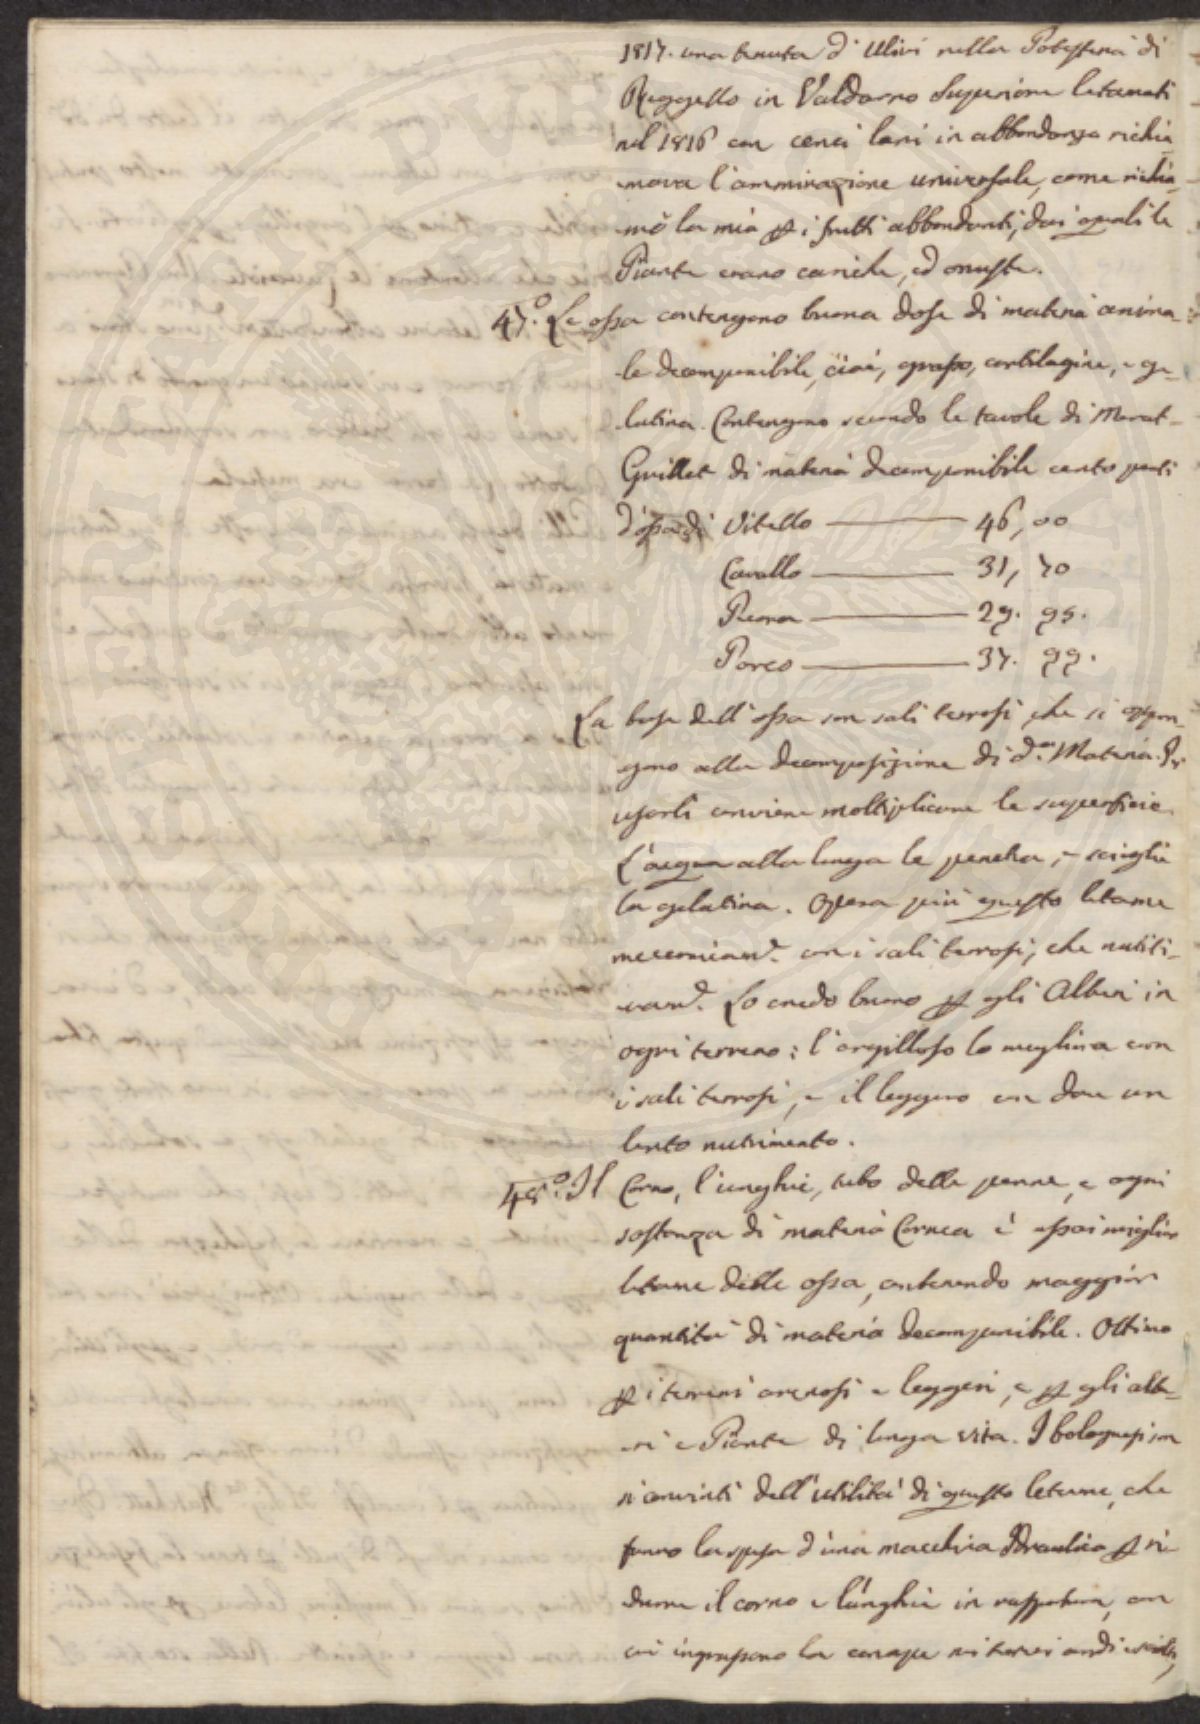 1817. una tenuta d'Ulivi nella Potesteria di
Reggello in Valdarno Superiore letamati
nel 1816 con cenci lani in abbondanza richia-
mava l'ammirazione universale, come richia-
mò la mia p i frutti abbondanti, dai quali le
Piante erano cariche, ed onuste.
47.º Le ossa contengono buona dose di materia anima-
le decomponibile, cioè, grasso, cartilagine, e ge-
latina. Contengono secondo le tavole di Merat-
Guillet di materia decomponibile cento parti
d'ossa di Vitello — 46,00
Cavallo — 31,70
Pecora — 29.95.
Porco — 37.99.
La base dell'ossa son sali terrosi che si oppon-
gono alla decomposizione di d.a Materia. Per
usarli conviene moltiplicare le superficie.
L'acqua alla lunga le penetra, e scioglie
la gelatina. Opera più questo letame
meccanicam.e con i sali terrosi, che nutriti-
vam.e Lo credo buono p gli Alberi in
ogni terreno; l'argilloso lo migliora con
i sali terrosi, e il leggero con dare un
lento nutrimento.
48.º Il Corno, l'unghie, tubo delle penne, e ogni
sostanza di materia Cornea è assai miglior
letame delle ossa, contenendo maggior
quantità di materia decomponibile. Ottimo
p i terreni arenosi e leggeri, e p gli albe-
ri e Piante di lunga vita. I bolognesi son
sì convinti dell'utilità di questo letame, che
fanno la spesa d'una macchina Idraulica p ri
durre il corno e l'unghie in raspatura, con
cui ingrassano la canape nei terreni